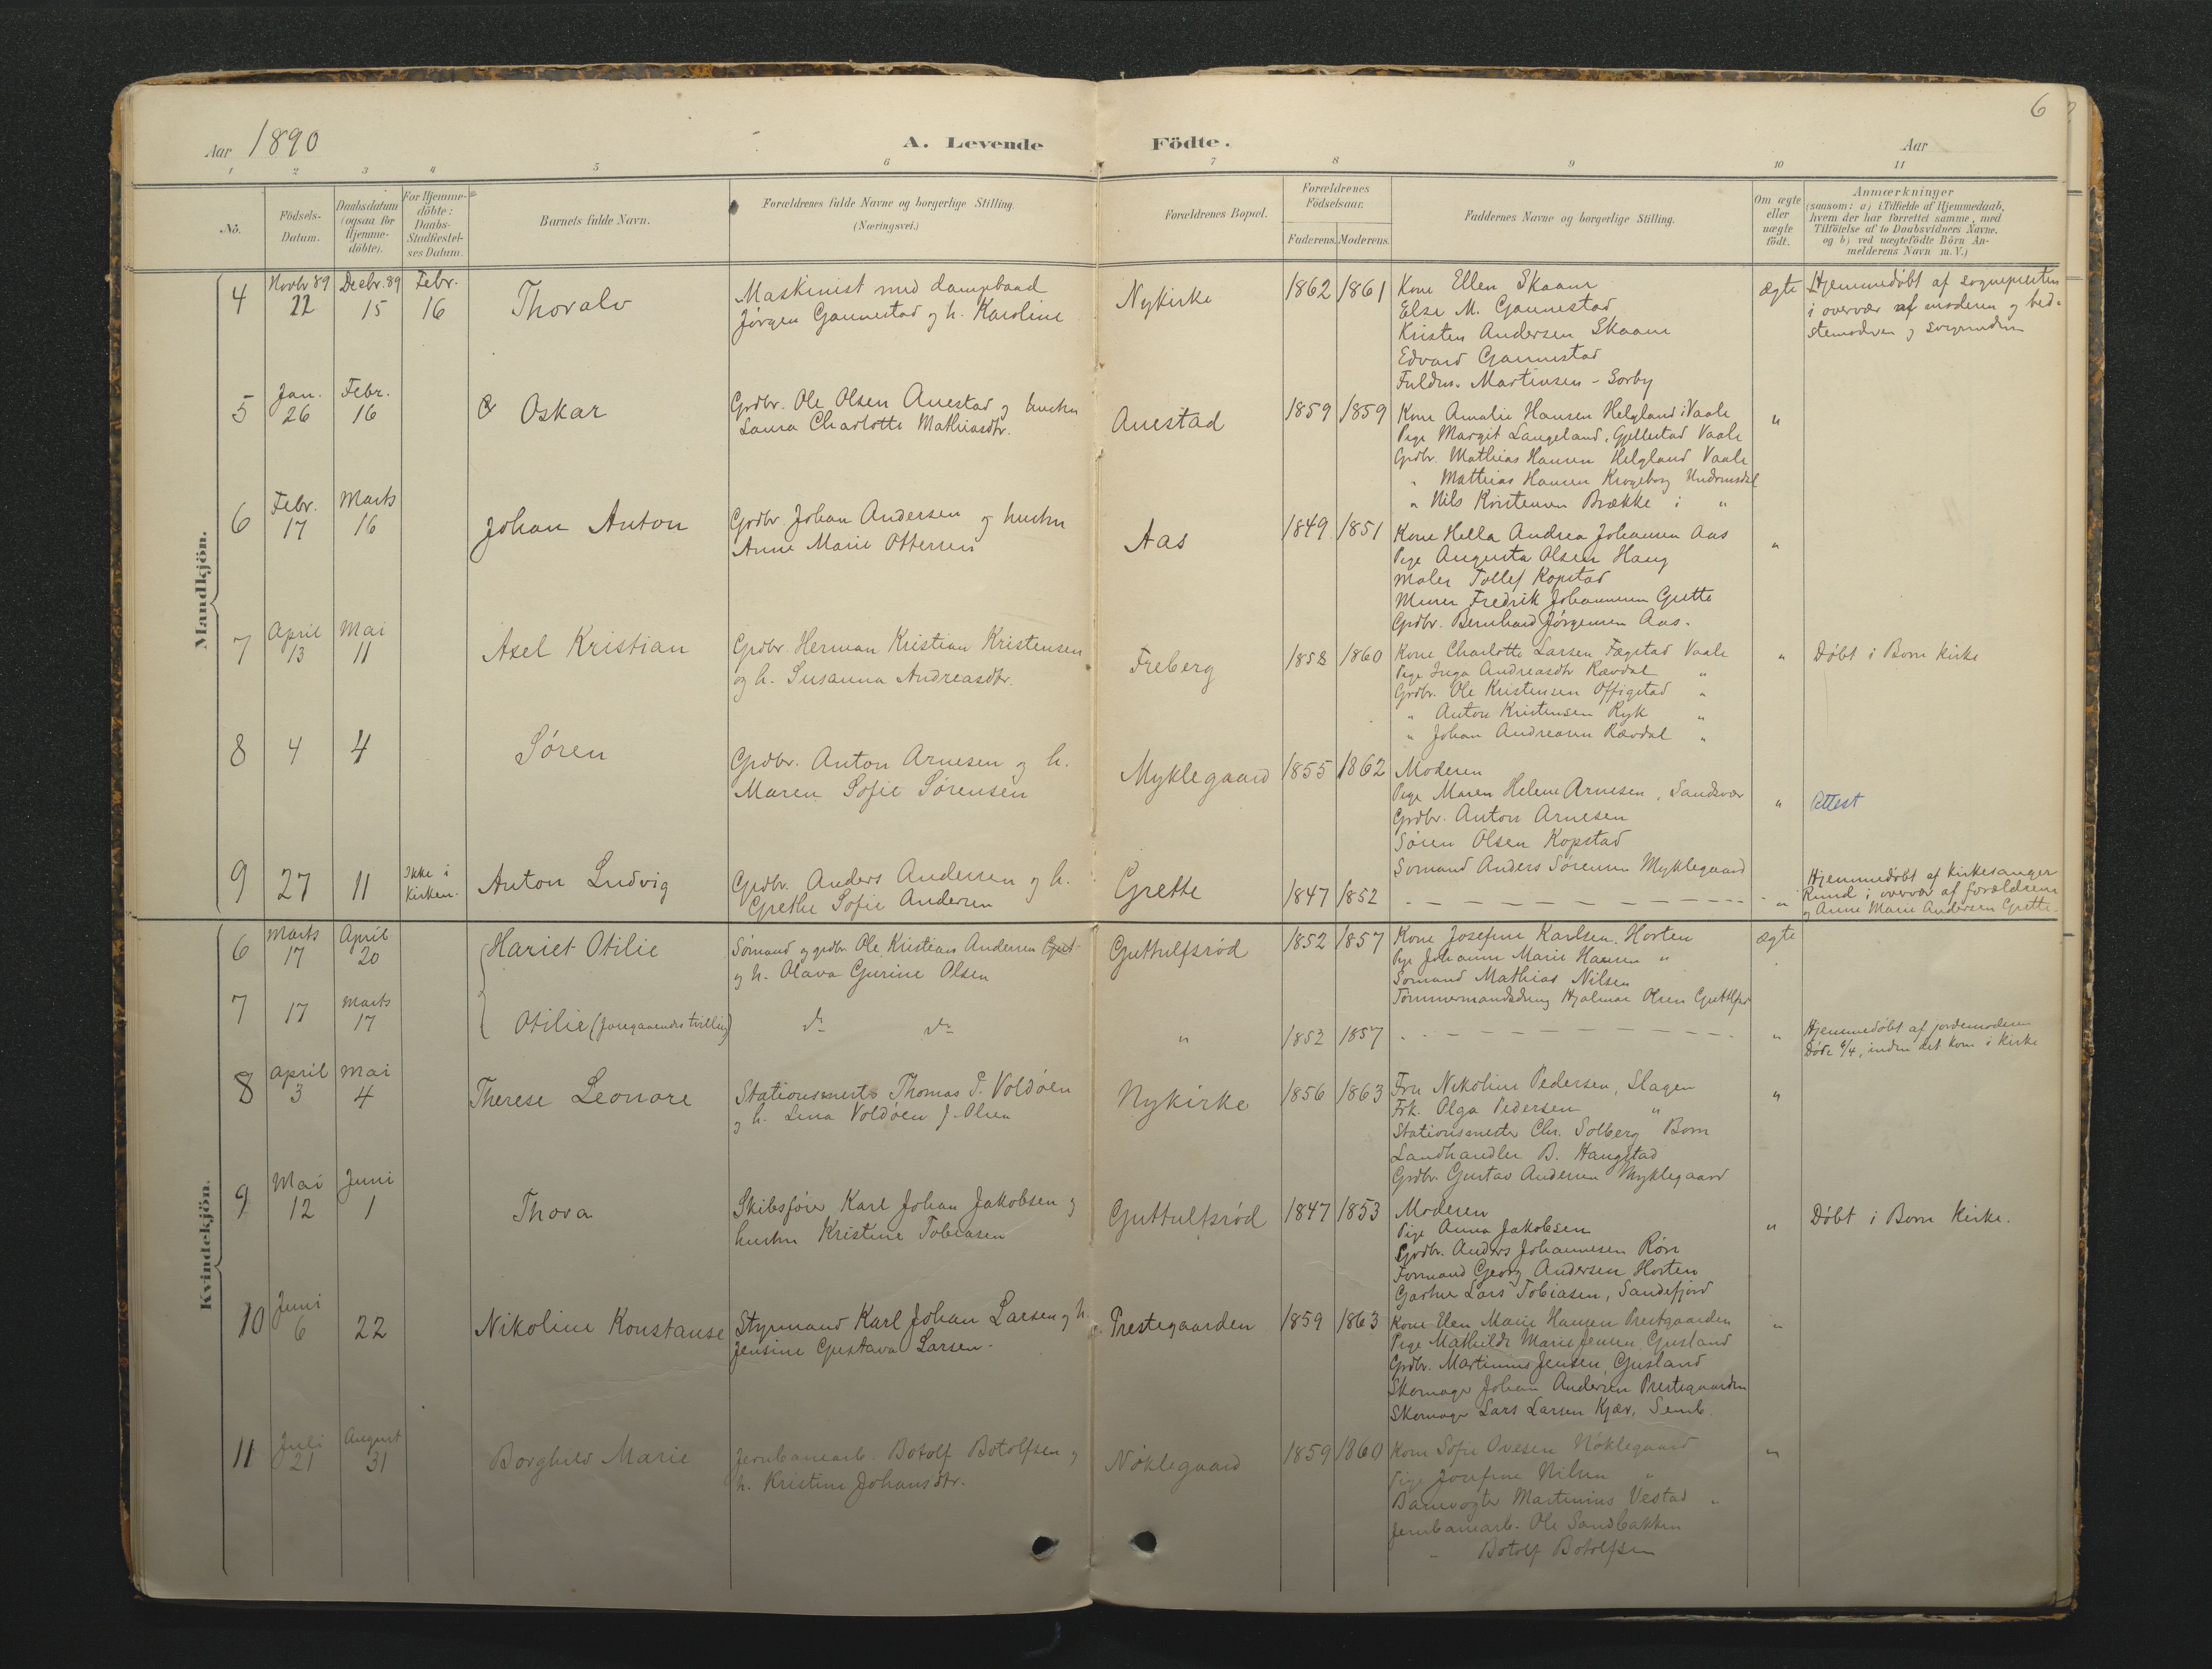 6
Aar 1890
A. Levende Födte.
Aar
1 2 3 4 5 6 7 8 9 10 11
Nö.
Födsels-Datum.
Daabsdatum (ogsaa for Hjemme-döbte).
For Hjemme-döbte: Daabs-Stadfæstel-ses Datum.
Barnets fulde Navn.
Forældrenes fulde Navne og borgerlige Stilling.
(Næringsvei.)
Forældrenes Bopæl.
Forældrenes Födselsaar.
Faderens. Moderens.
Faddernes Navne og borgerlige Stilling.
Om ægte eller uægte födt.
Anmærkninger
(saasom: a) i Tilfælde af Hjemmedaab, hvem der har forrettet samme, med Tilföielse af to Daabsvidners Navne. og b) ved uægtefödte Börn An-melderens Navn m. V.)
Mandkjön.
4 Novbr 89 22 Decbr. 89 15 Febr. 16 Thoralv
Maskinist med dampbaad
Jørgen Gannestad og h. Karoline
Nykirke 1862 1861
Kone Ellen Skaane
Else M. Gannestad
Kristen Andersen Skaane
Edvard Gannestad
Martinsen - Sørby
ægte
Hjemmedøbt af sognepresten
i overvær af moderen og bed-
stemoderen
5 Jan. 26 Febr. 16 Oskar
Grdbr. Ole Olsen Anestad og hustru
Laura Charlotte Mathiasdtr.
Anestad 1859 1859
Kone Amalie Hansen Helgland i Vaale
Pige Margit Langeland, Gjellestad Vaale
Grdbr. Mathias Hansen Helgland Vaale
" Matthias Hansen Krogeborg Undrumsdal
" Nils Kristensen Brække i "
"
6 Febr. 17 Marts 16 Johan Anton
Grdbr Johan Andersen og hustru
Anne Marie Ottersen
Aas 1849 1851
Kone Hella Andrea Johansen Aas
Pige Augusta Olsen Haug
Maler Tollef Kopstad
Murer Fredrik Johannesen Grette
Grdbr. Bernhard Jørgensen Aas.
"
7 April 13 Mai 11 Axel Kristian
Grdbr. Herman Kristian Kristensen
og h. Susanna Andreasdtr.
Freberg 1858 1860
Kone Charlotte Larsen Fægstad Vaale
Pige Inga Andreasdtr Rævdal "
Grdbr. Ole Kristensen Offigstad "
" Anton Kristensen Ryk "
" Johan Andreasen Rævdal "
"
Døbt i Borre kirke
8 4 4 Søren
Grdbr. Anton Arnesen og h.
Maren Sofie Sørensen
Myklegaard 1855 1862
Moderen
Pige Maren Helene Arnesen, Sandsvær
Grdbr. Anton Arnesen
Søren Olsen Kopstad
Sømand Anders Sørensen Myklegaard
"
Attest
9 27 11 Ikke i Kirken. Anton Ludvig
Grdbr. Anders Andersen og h.
Grethe Sofie Andersen
Grette 1847 1852
"
Hjemmedøbt af kirkesanger
Rund i overvær af forældrene
og Anne Marie Andersen Grette
Kvindekjön.
6 Marts 17 April 20 Hariet Otilie
Sømand og grdbr. Ole Kristian Andersen
og h. Olava Gurine Olsen
Guttulfsrød 1852 1857
Kone Josefine Karlsen Horten
Pige Johanne Marie Hansen "
Sømand Mathias Nilsen
Tømmermandsdreng Hjalmar Olsen
ægte
7 17 Marts 17 Otilie (foregaaendes tvilling)
do do
" 1852 1857
"
Hjemmedøbt af jordemoderen
Døde 6/4, inden det kom i kirke
8 April 3 Mai 4 Therese Leonore
Stationsmester Thomas P. Voldøen
og h. Lina Voldøen f. Olsen
Nykirke 1856 1863
Fru Nikoline Pedersen, Slagen
Frk. Olga Pedersen "
Stationsmester Chr. Solberg Borre
Landhandler B. Haugstad
Grdbr. Gustav Andersen Myklegaard
"
9 Mai 12 Juni 1 Thora
Skibsfører Karl Johan Jakobsen og
hustru Kristine Tobiasen
Guttulfsrød 1847 1853
Moderen
Pige Anna Jakobsen
Grdbr. Anders Johannesen Rørs
Formand Georg Andersen Horten
Gartner Lars Tobiasen, Sandefjord
"
Døbt i Borre kirke.
10 Juni 6 22 Nikoline Konstanse
Styrmand Karl Johan Larsen og h.
Jensine Gustava Larsen.
Prestegaarden 1859 1863
Kone Elen Marie Hansen Prestgaarden
Pige Mathilde Marie Jensen Gusland
Grdbr. Martinius Jensen Gusland
Skomager Johan Andersen Prestegaarden
Skomager Lars Larsen Kjær, Semb.
"
11 Juli 21 August 31 Borghild Marie
Jernbanearb. Botolf Botolfsen og
h. Kristine Johansdtr.
Nøklegaard 1859 1860
Kone Sofie Ovesen Nøklegaard
Pige Josefine Nilsen "
Banevogter Martinius Vestad "
Jernbanearb. Ole Sandbakken
" Botolf Botolfsen
"